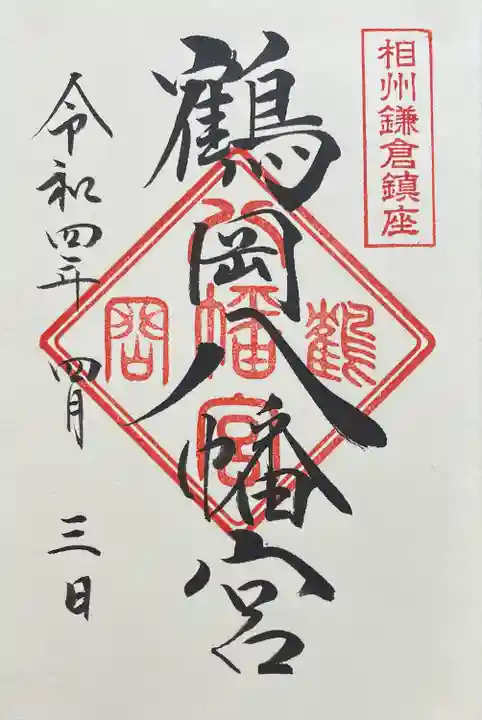 相州鎌倉鎮座
鶴岡八幡宮
鶴 八幡宮 岡
令和四年 四月 三日